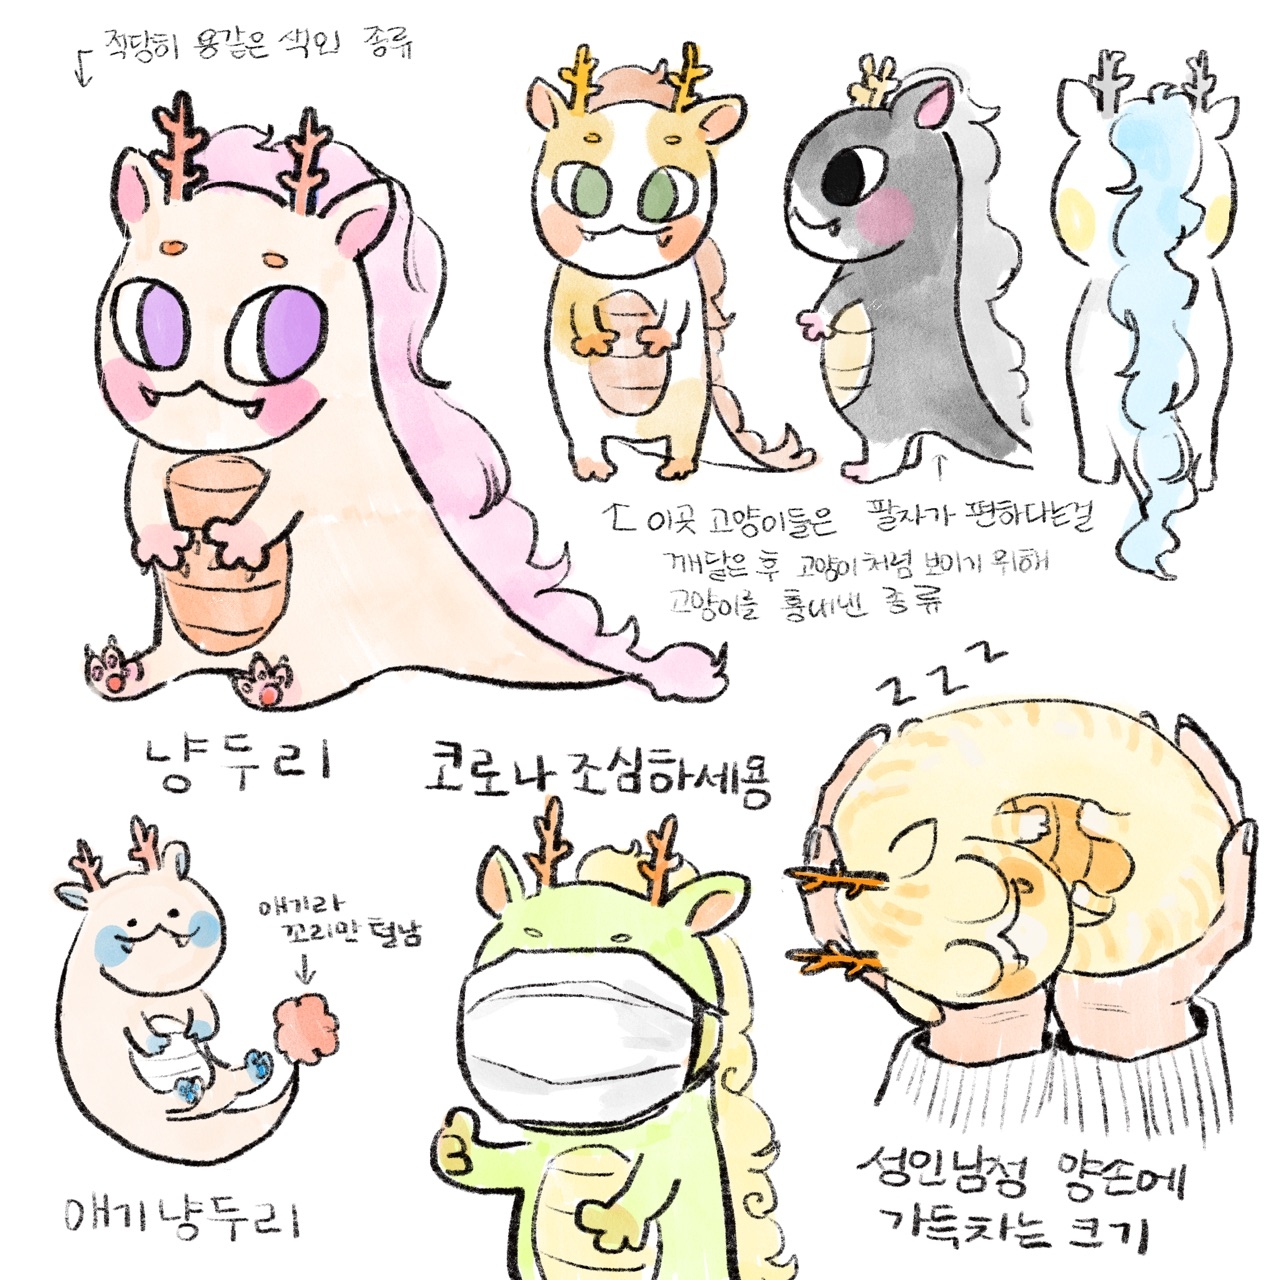 적당히 용같은 색인 종류
이곳 고양이들은 팔자가 편하다는걸
깨달은 후 고양이처럼 보이기 위해
고양이를 흉내낸 종류
냥두리
코로나 조심하세용
zzz
애기라
꼬리만 털남
애기냥두리
성인남성 양손에
가득차는 크기